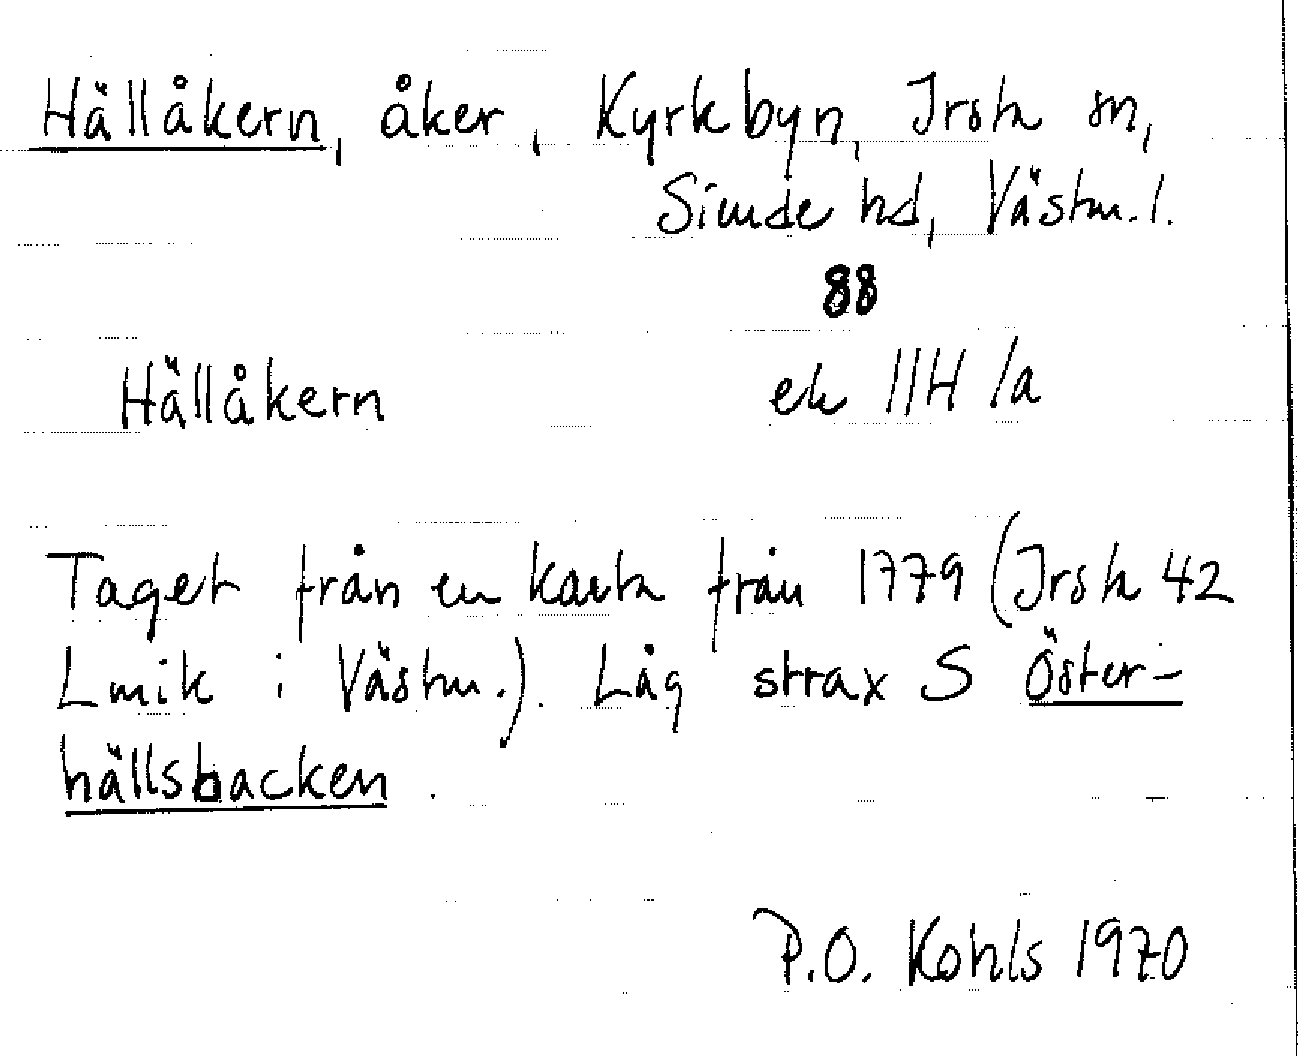 Hällåkern, åker, Kyrkbyn, Irsta sn,
Siende hd, Västm. l.
88
Hällåkern ek 11H 1a
Taget från en karta från 1779 (Irsta 42
Lmik i Västm.). Låg strax S Öster-
hällsbacken.
P.O. Kohls 1970